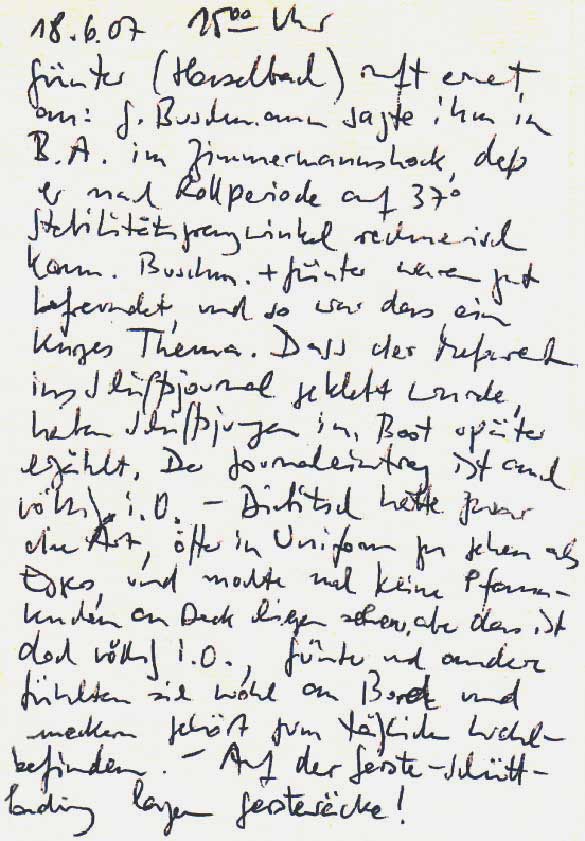 18.6.07 15⁰⁰ Uhr
Günter (Hasselbach) ruft erneut
an: G. Buschmann sagte ihm in
B.A. im Zimmermannshock, daß
er nach Rollperiode auf 37°
Stabilitäts winkel rechnerisch
kam. Buschm. + Günter waren gut
befreundet, und so war das ein
kurzes Thema. Dass der
ins Schiffsjournal geklebt wurde,
haben Schiffsjungen im Boot später
erzählt. Der Journaleintrag ist auch
völlig i.O. – hatte zwar
die Art, öfter in Uniform zu gehen als
und mochte mal keine Pfann-
kuchen an Deck liegen sehen, aber das ist
doch völlig i.O., Günter und andere
fühlten sich wohl an Bord und
meckern gehört zum täglichen Wohl-
befinden. – Auf der Gerste-Schütt-
ladung lagen Gerstesäcke!